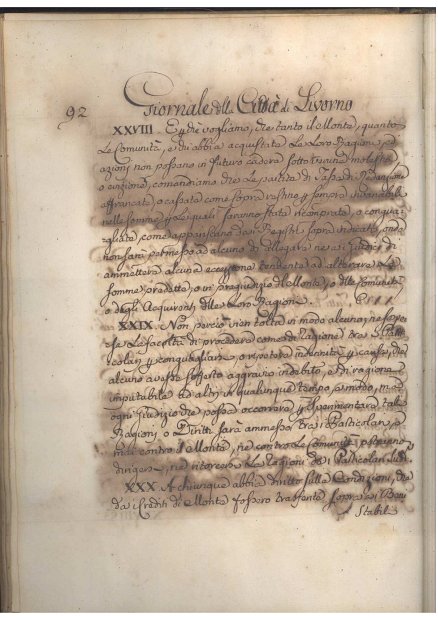 92
Giornale della Città di Livorno
XXVIII. E perche vogliamo, che tanto il Monte, quanto
Le Comunità, e chi abbia acquistata Le Loro Ragioni, ed
azioni non possano in futuro cadere sotto veruna molestia,
o evizione, comandiamo che Le partite di Tassa di Redenzione
affrancate, o casate come sopra restino
nelle somme Le quali saranno state ricomprate, o conguagliate
come appariscano dai Registri sopra indicati, onde
non sarà permesso ad alcuno di allegare ne ai Giudici di
ammettere alcuna eccezione tendente ad alterare Le
somme predette, o in pregiudizio del Monte, o delle Comunità
o degli Acquirenti delle Loro Ragioni.
XXIX. Non perciò vien tolta in modo alcuno, ne sospesa
La facoltà di procedere come di ragione tra i Particolari
conguagliare, o ripetere indennità causa, che
alcuno avesse sofferto aggravio indebito, e di ragione
imputabile ad altri in qualunque tempo, e modo, ma
ogni Giudizio che possa occorrere sperimentare tali
Ragioni, o Diritti sarà ammesso tra i Particolari, e
mai contro il Monte, ne contro Le Comunità, potranno
dirigersi, ne ritorcersi Le azioni dei Particolari
XXX. A chiunque abbia diritto sulle Condizioni, che
da i Crediti di Monte fossero trasferite sopra ai Beni
Stabili